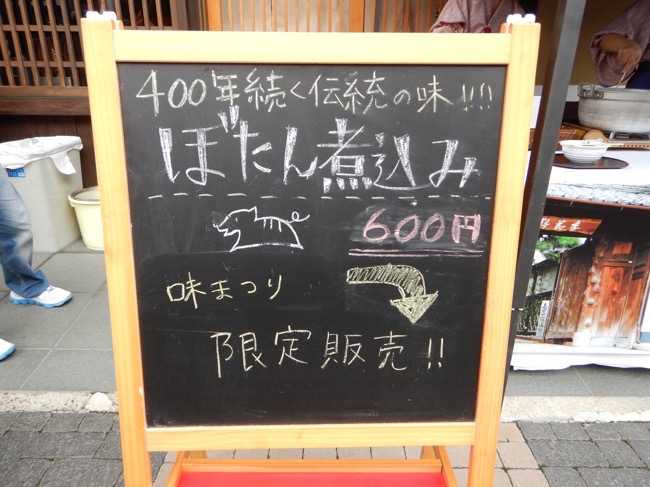 400年続く伝統の味!!!
ぼたん煮込み
600円
味まつり
限定販売!!